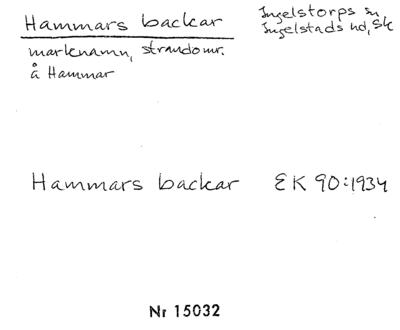 Hammars backar
Ingelstorps sn
Ingelstads hd, Sk
marknamn, strandomr.
å Hammar
Hammars backar EK 90:1934
Nr 15032